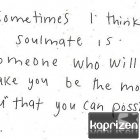 Sometimes I think
soulmate is
omeone who will
ake you be the mo
u" that you can possi
koprizen